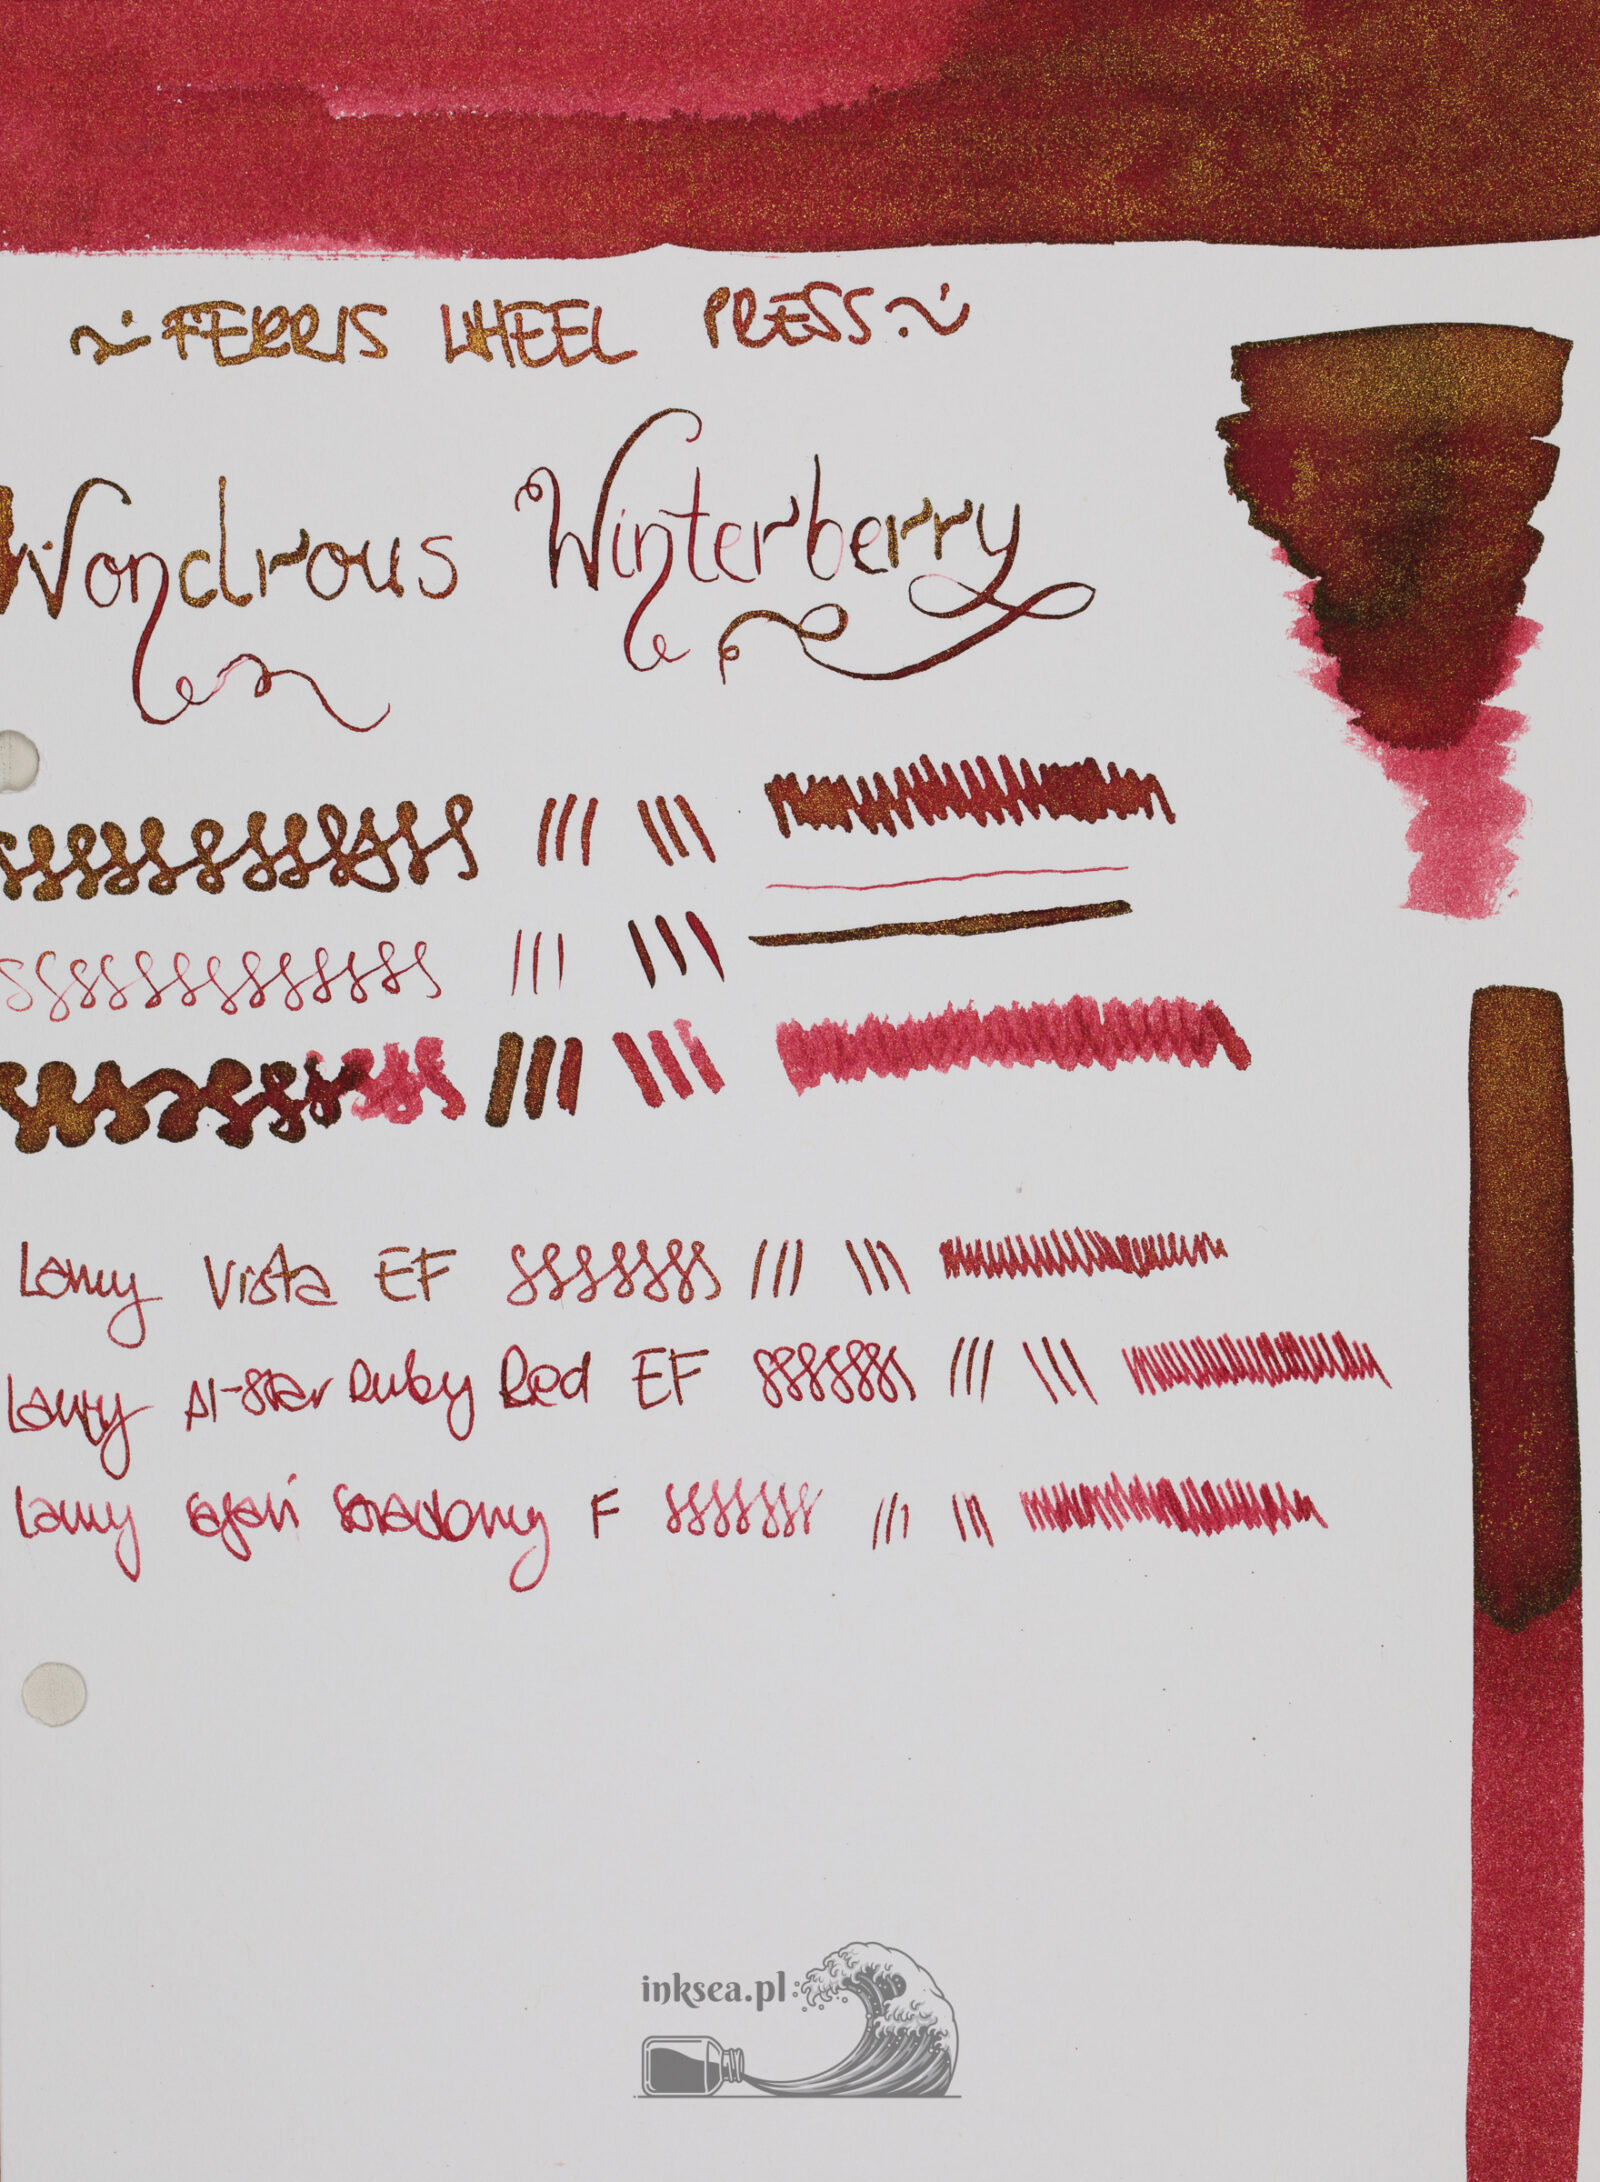 ~ FERRIS WHEEL PRESS ~
Wondrous Winterberry
Lamy Vista EF
Lamy Al-Star Ruby Red EF
Lamy Safari Strawberry F
inksea.pl